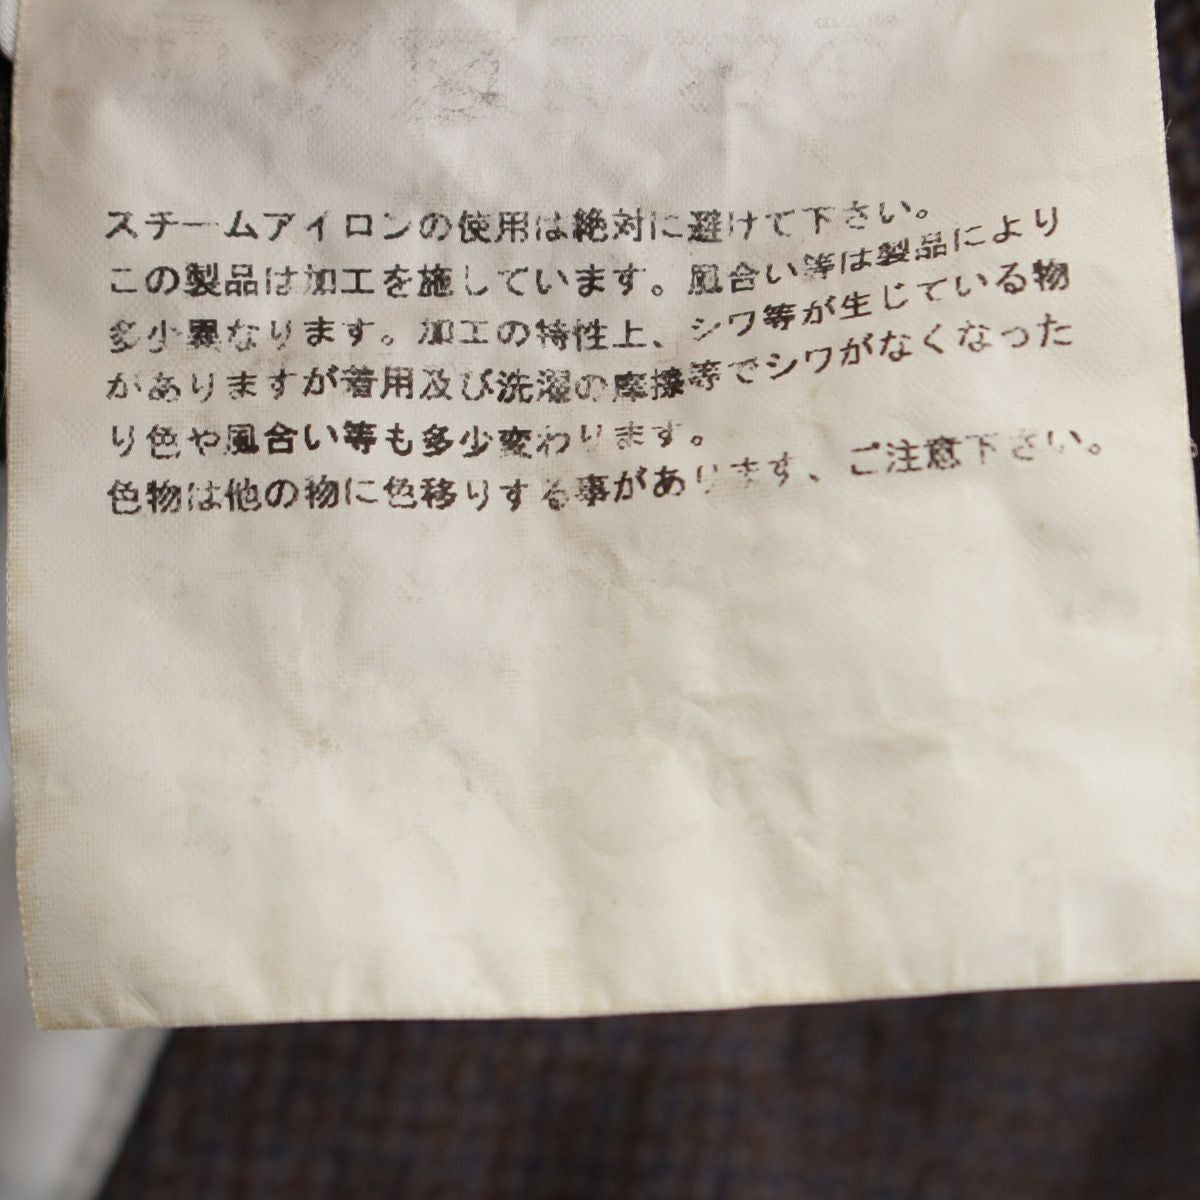 スチームアイロンの使用は絶対に避けて下さい。
この製品は加工を施しています。風合い等は製品により
多少異なります。加工の特性上、シワ等が生じている物
がありますが着用及び洗濯の摩擦等でシワがなくなった
り色や風合い等も多少変わります。
色物は他の物に色移りする事があります、ご注意下さい。